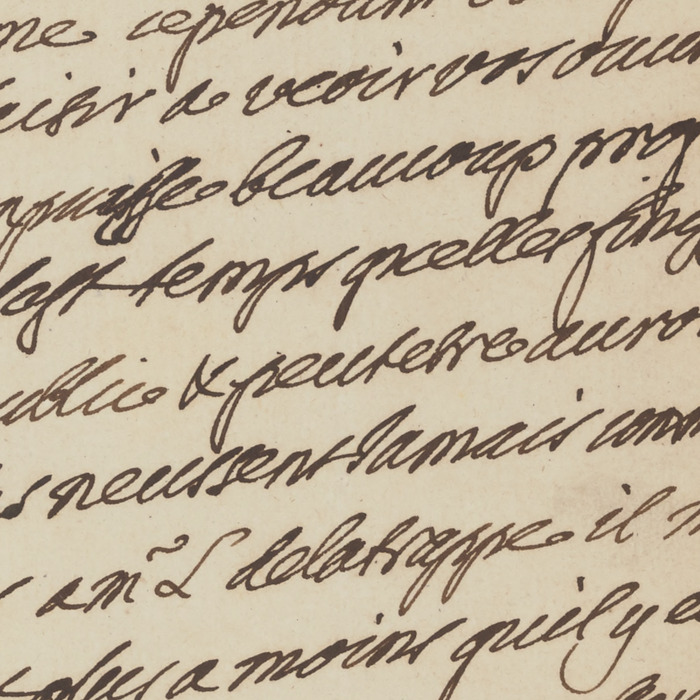 me cependant
plaisir de veoir vos
puisse beaucoup
lest temps quelles
public & peutetre auro
s neussent Jamais com
a mr̃ L delatrappe il
plus a moins quil y a